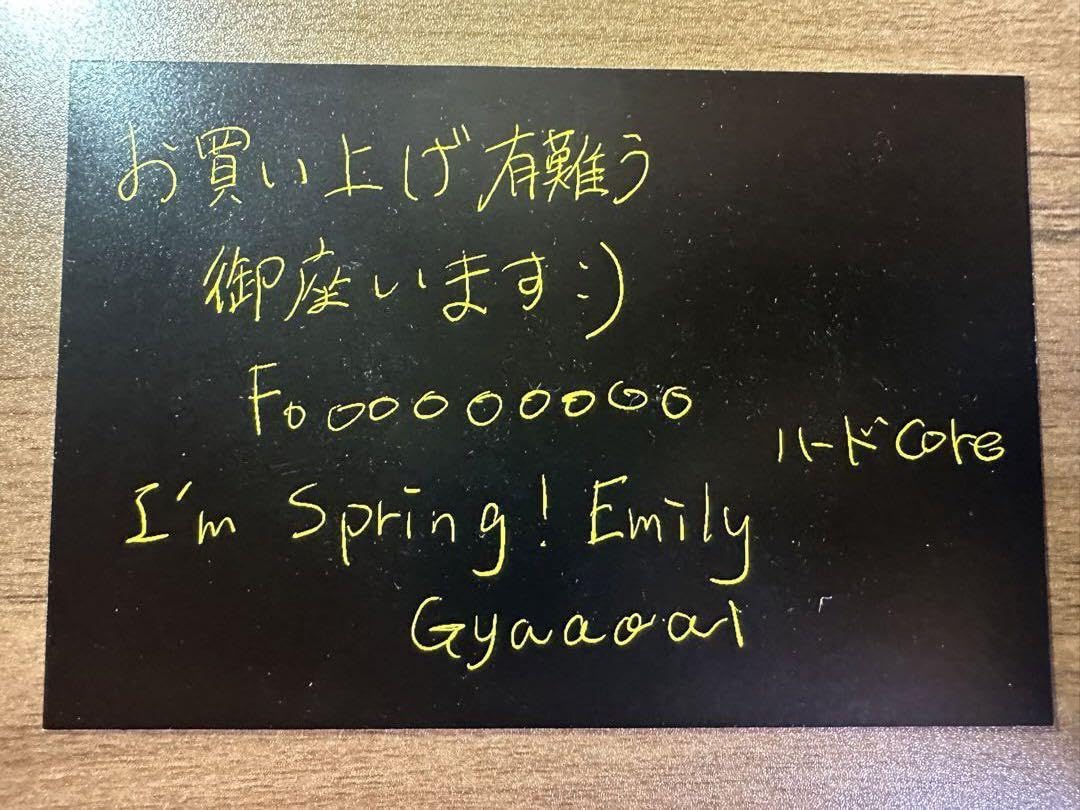 お買い上げ有難う
御座います:)
Fooooooooo
ハードCore
I'm Spring! Emily
Gyaaaoal